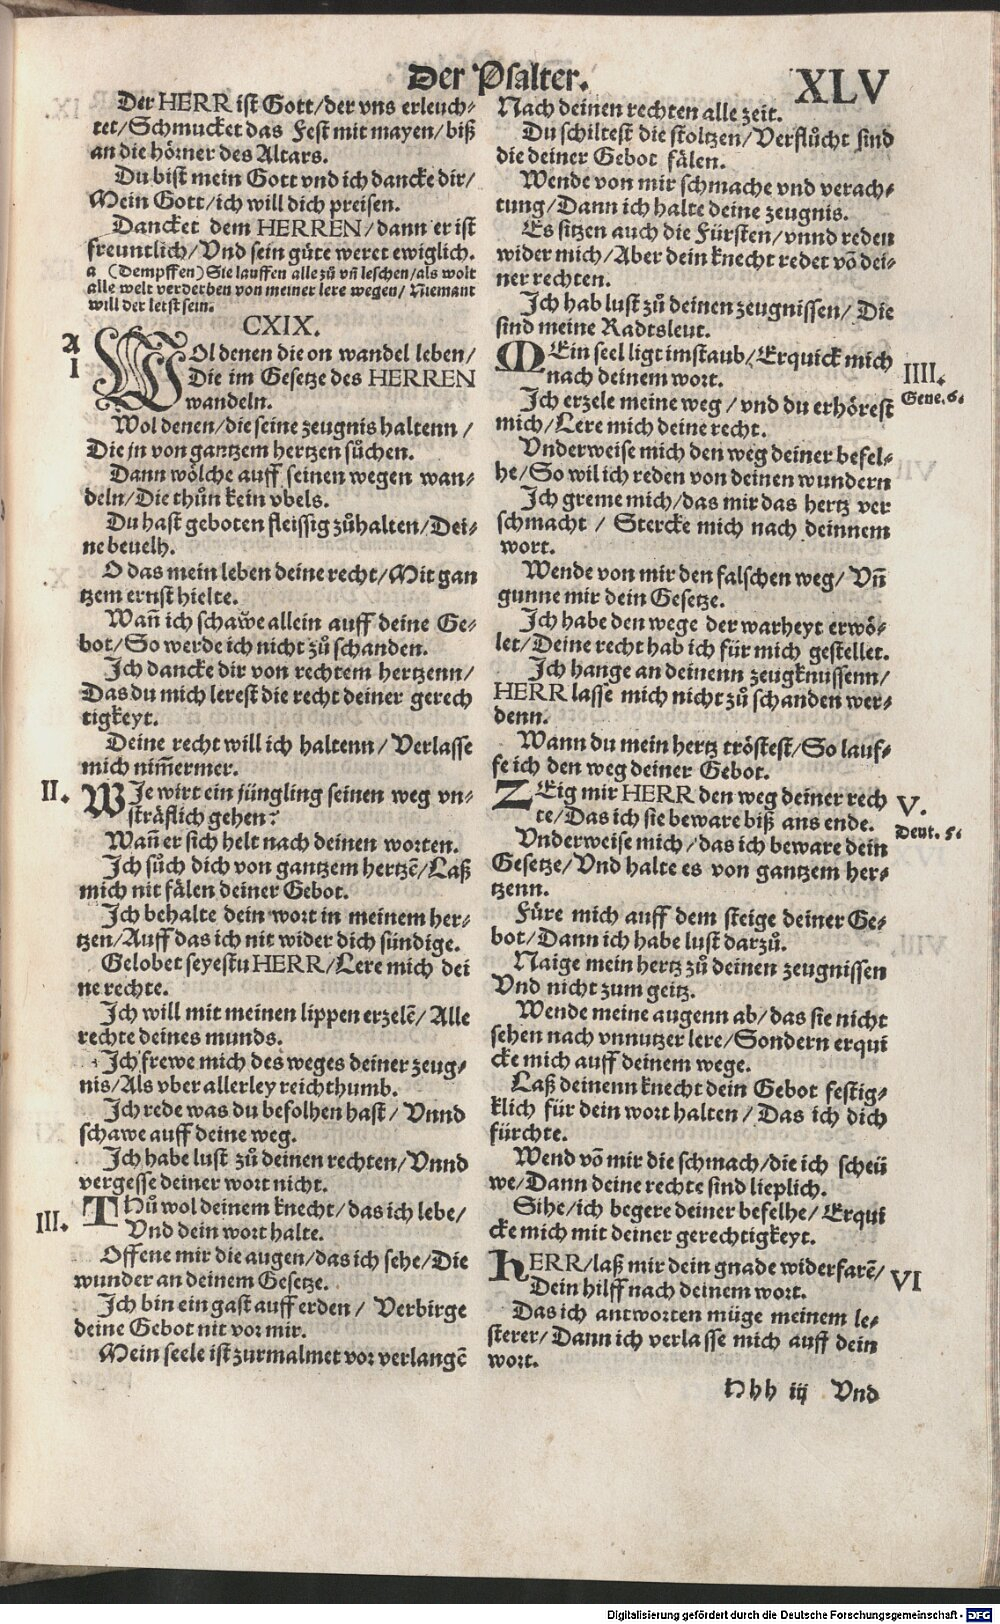 Der Psalter. XLV
Der HERR ist Gott/der vns erleuch-
tet/Schmucket das Fest mit mayen/biß
an die hörner des Altars.
Du bist mein Gott vnd ich dancke dir/
Mein Gott/ich will dich preisen.
Dancket dem HERREN/dann er ist
freuntlich/Vnd sein güte weret ewiglich.
a (Dempffen) Sie lauffen alle zů vñ leschen/als wolt
alle welt verderben von meiner lere wegen/Niemant
will der letst sein.
CXIX.
A
I
WOl denen die on wandel leben/
Die im Gesetze des HERREN
wandeln.
Wol denen/die seine zeugnis haltenn/
Die jn von gantzem hertzen sůchen.
Dann wölche auff seinen wegen wan-
deln/Die thůn kein vbels.
Du hast geboten fleissig zůhalten/Dei-
ne beuelh.
O das mein leben deine recht/Mit gan
tzem ernst hielte.
Wañ ich schawe allein auff deine Ge-
bot/So werde ich nicht zů schanden.
Jch dancke dir von rechtem hertzenn/
Das du mich lerest die recht deiner gerech
tigkeyt.
Deine recht will ich haltenn/Verlasse
mich nim̃ermer.
II.
WJe wirt ein jüngling seinen weg vn-
sträflich gehen?
Wañ er sich helt nach deinen worten.
Jch sůch dich von gantzem hertzẽ/Laß
mich nit fälen deiner Gebot.
Jch behalte dein wort in meinem her-
tzen/Auff das ich nit wider dich sündige.
Gelobet seyestu HERR/Lere mich dei
ne rechte.
Jch will mit meinen lippen erzelẽ/Alle
rechte deines munds.
Jch frewe mich des weges deiner zeug-
nis/Als vber allerley reichthumb.
Jch rede was du befolhen hast/Vnnd
schawe auff deine weg.
Jch habe lust zů deinen rechten/Vnnd
vergesse deiner wort nicht.
III.
THů wol deinem knecht/das ich lebe/
Vnd dein wort halte.
Offene mir die augen/das ich sehe/Die
wunder an deinem Gesetze.
Jch bin ein gast auff erden/Verbirge
deine Gebot nit vor mir.
Mein seele ist zurmalmet vor verlangẽ
Nach deinen rechten alle zeit.
Du schiltest die stoltzen/Verflůcht sind
die deiner Gebot fälen.
Wende von mir schmache vnd verach-
tung/Dann ich halte deine zeugnis.
Es sitzen auch die Fürsten/vnnd reden
wider mich/Aber dein knecht redet võ dei-
ner rechten.
Jch hab lust zů deinen zeugnissen/Die
sind meine Radtsleut.
MEin seel ligt im staub/Erquick mich
nach deinem wort.
IIII.
Gene. 6.
Jch erzele meine weg/vnd du erhörest
mich/Lere mich deine recht.
Vnderweise mich den weg deiner befel-
he/So wil ich reden von deinen wundern
Jch greme mich/das mir das hertz ver
schmacht/Stercke mich nach deinnem
wort.
Wende von mir den falschen weg/Vñ
gunne mir dein Gesetze.
Jch habe den wege der warheyt erwö-
let/Deine recht hab ich für mich gestellet.
Jch hange an deinenn zeugknussenn/
HERR lasse mich nicht zů schanden wer-
denn.
Wann du mein hertz tröstest/So lauf-
fe ich den weg deiner Gebot.
ZEig mir HERR den weg deiner rech
te/Das ich sie beware biß ans ende.
V.
Deut. 5.
Vnderweise mich/das ich beware dein
Gesetze/Vnd halte es von gantzem her-
tzenn.
Füre mich auff dem steige deiner Ge-
bot/Dann ich habe lust darzů.
Naige mein hertz zů deinen zeugnissen
Vnd nicht zum geitz.
Wende meine augenn ab/das sie nicht
sehen nach vnnutzer lere/Sondern erqui
cke mich auff deinem wege.
Laß deinenn knecht dein Gebot festig-
klich für dein wort halten/Das ich dich
fürchte.
Wend võ mir die schmach/die ich scheü
we/Dann deine rechte sind lieplich.
Sihe/ich begere deiner befelhe/Erqui
cke mich mit deiner gerechtigkeyt.
hERR/laß mir dein gnade widerfarẽ/
Dein hilff nach deinem wort.
VI
Das ich antworten müge meinem le-
sterer/Dann ich verlasse mich auff dein
wort.
Hhh iij Vnd
Digitalisierung gefördert durch die Deutsche Forschungsgemeinschaft - DFG